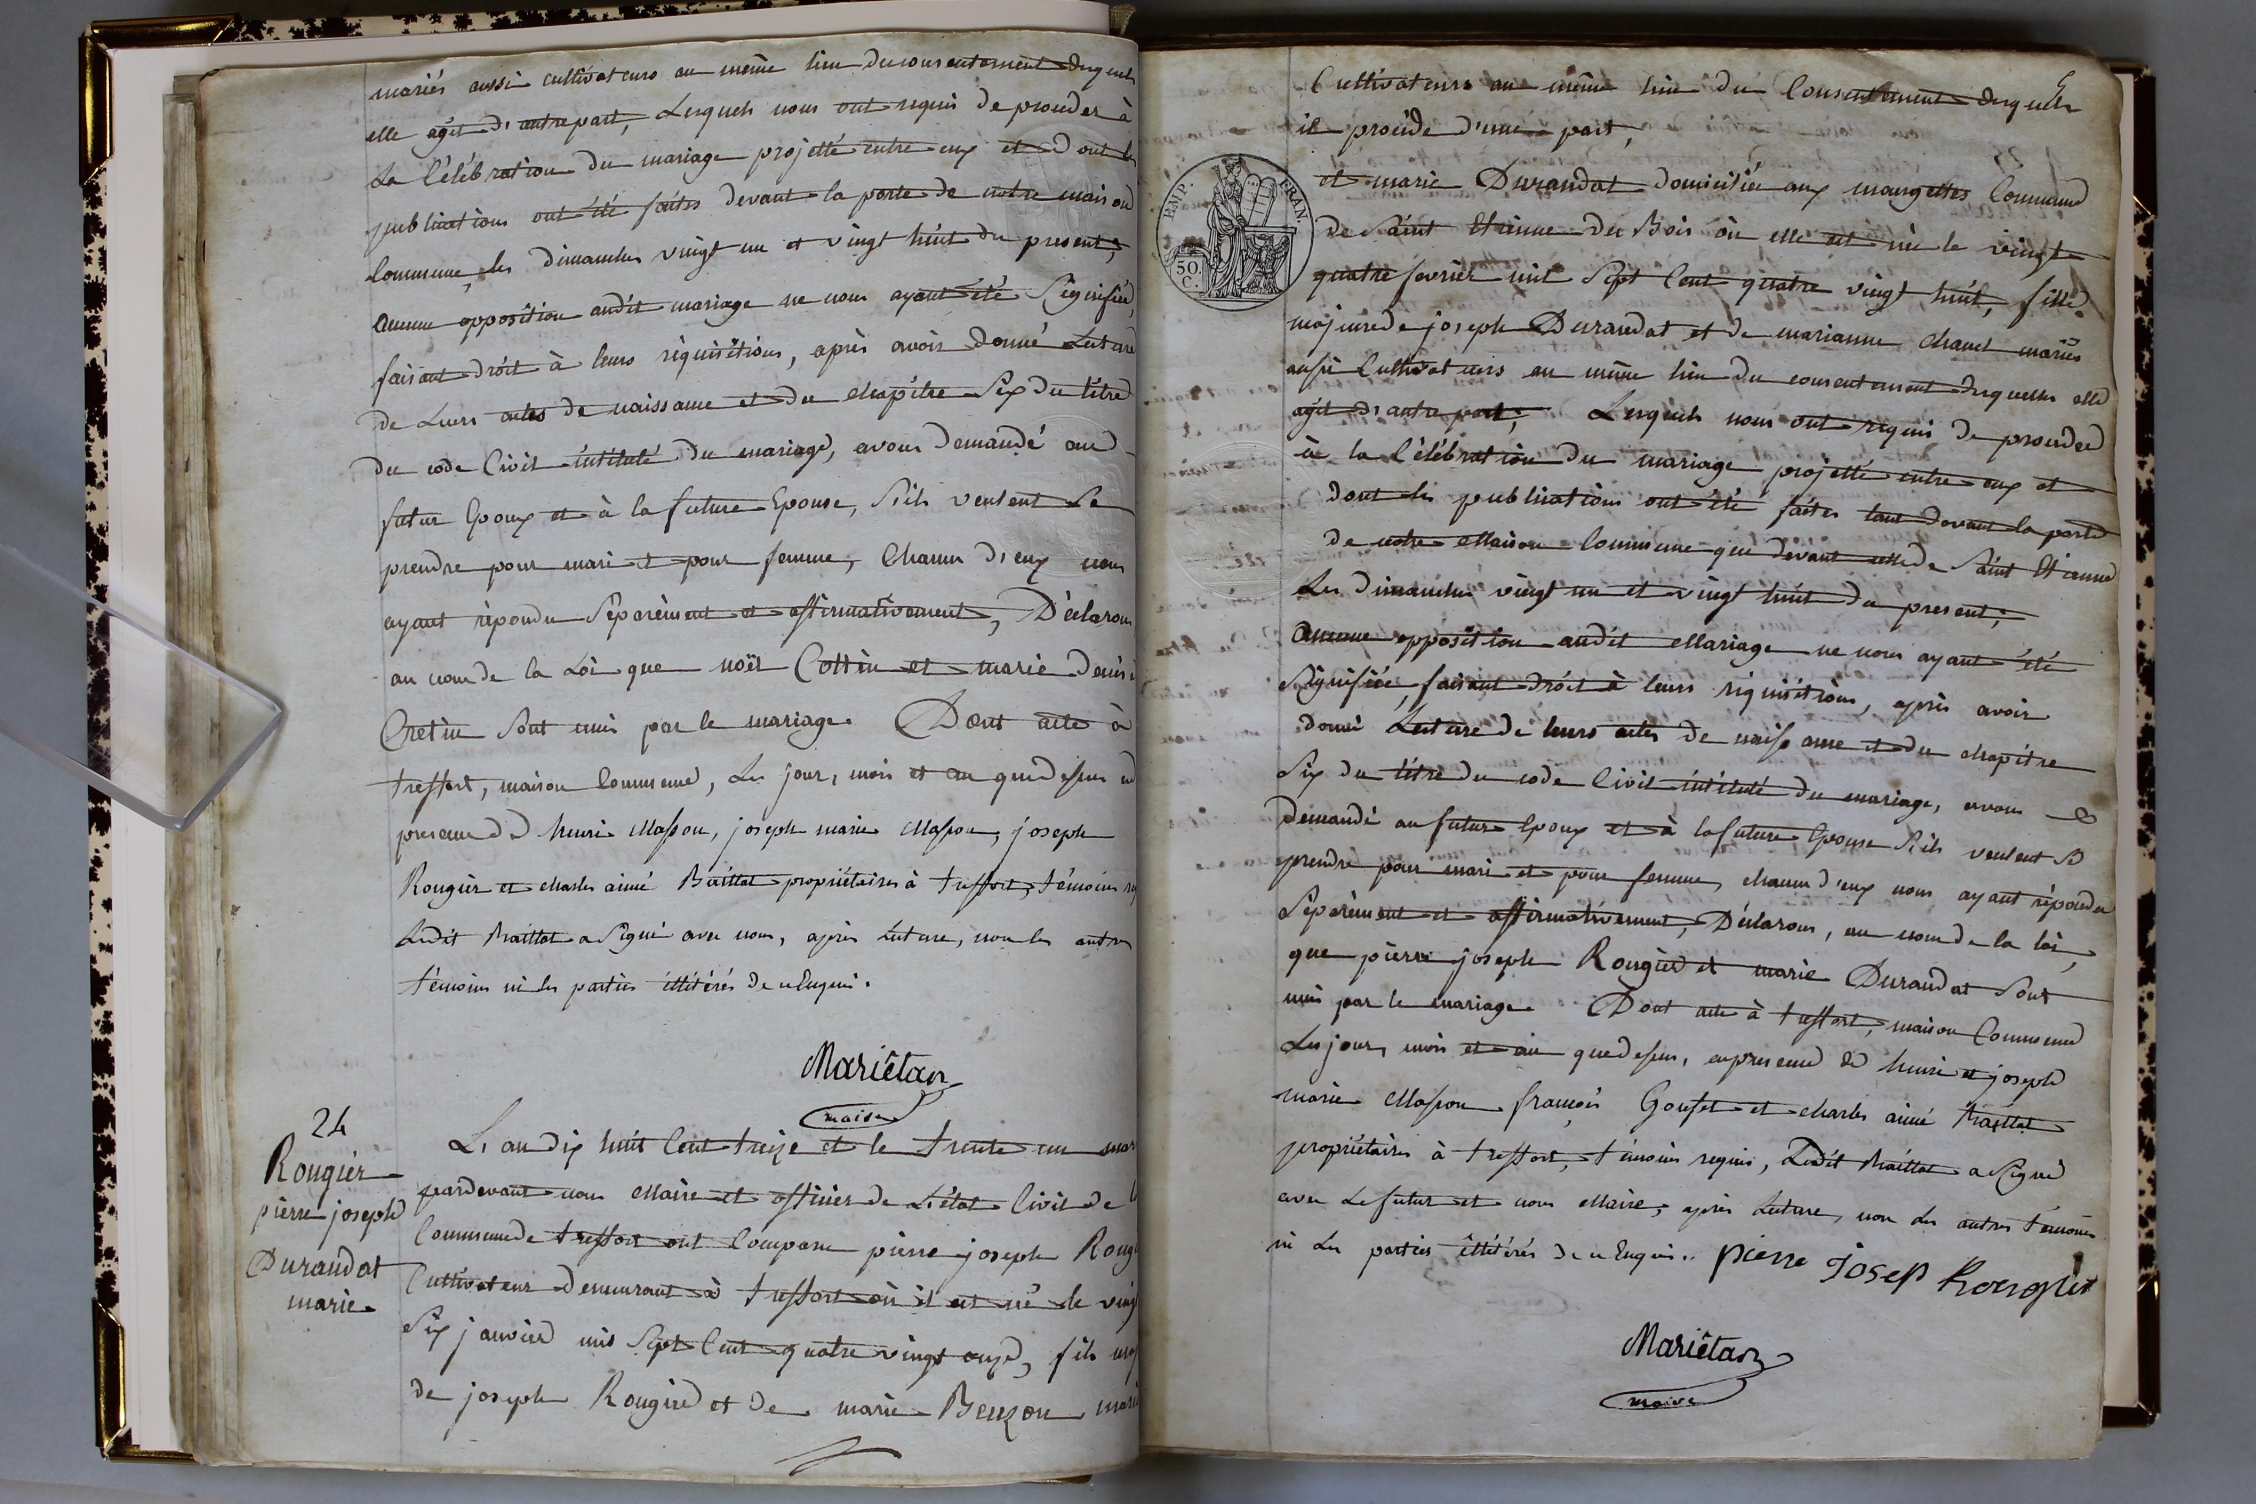 mariés aussi cultivateurs au même lieu du consentement desquels
elle agit d'autre part, Lesquels nous ont requis de proceder à
La Célébration du mariage projetté entre eux et dont les
publications ont été faites devant la porte de notre maison
Commune, les dimanches vingt un et vingt huit du present;
Aucune opposition audit mariage ne nous ayant été Signifiée,
faisant droit à leurs réquisitions, après avoir donné Lecture
de Leurs actes de naissance et du chapitre Six du titre
du code Civil intitulé du mariage, avons demandé au
futur Epoux et à la future Epouse, S'ils veulent Se
prendre pour mari et pour femme, Chacun d'eux nous
ayant répondu Séparément et affirmativement, Déclarons
au nom de la Loi que noël Cottin et marie denise
Cretin Sont unis par le mariage. Dont acte à
treffort, maison Commune, Les jour, mois et an que dessus en
presence de henri Masson, joseph marie Masson, joseph
Rougier et charles aimé Braillat propriétaires à treffort, témoins
Ledit Braillat a Signé avec nous, après Lecture, non les autres
témoins ni les parties illitérés de ce Enquis.
Mariêtan
maire
24
Rougier
pierre joseph
Durandat
marie
L'an dix huit Cent treize et le trente un mars
pardevant nous Maire et officier de L'état Civil de la
Commune de treffort ont Comparu pierre joseph Rougier
Cultivateur demeurant à treffort où il est né le vingt
Six janvier mil Sept Cent quatre vingt onze, fils
de joseph Rougier et de marie Benzon mariés
6
Cultivateurs au même lieu du Consentement desquels
il procéde d'une part,
EMP. FRAN.
50.
C.
et marie Durandat domiciliée aux mangettes Commune
de Saint Etienne du Bois où elle est née le vingt
quatre fevrier mil Sept Cent quatre vingt huit, fille
majeure de joseph Durandat et de marianne chanel mariés
aussi Cultivateurs au même lieu du consentement desquelles elle
agit d'autre part; Lesquels nous ont requis de proceder
à la Célébration du mariage projetté entre eux et
dont les publications ont été faites tant devant la porte
de notre Maison Commune que devant celle de Saint Etienne
Les dimanches vingt un et vingt huit du present;
Aucune opposition audit Mariage ne nous ayant été
Signifiée, faisant droit à leurs réquisitions, après avoir
donné Lecture de leurs actes de naissance et du chapitre
Six du titre du code Civil intitulé du mariage, avons
demandé au futur Epoux et à la future Epouse S'ils veulent Se
prendre pour mari et pour femme, chacun d'eux nous ayant répondu
Séparément et affirmativement, Déclarons, au nom de la loi,
que pierre joseph Rougier et marie Durandat Sont
unis par le mariage. Dont acte à treffort, maison Commune
Les jour, mois et an que dessus, en presence de henri et joseph
marie Masson françois Goufet et charles aimé Braillat
propriétaires à treffort, témoins requis, Ledit Braillat a Signé
avec Le futur et nous Maire, après Lecture, non Les autres témoins
ni Les parties illitérés de ce Enquis. pierre Josep Rougier
Mariêtan
maire